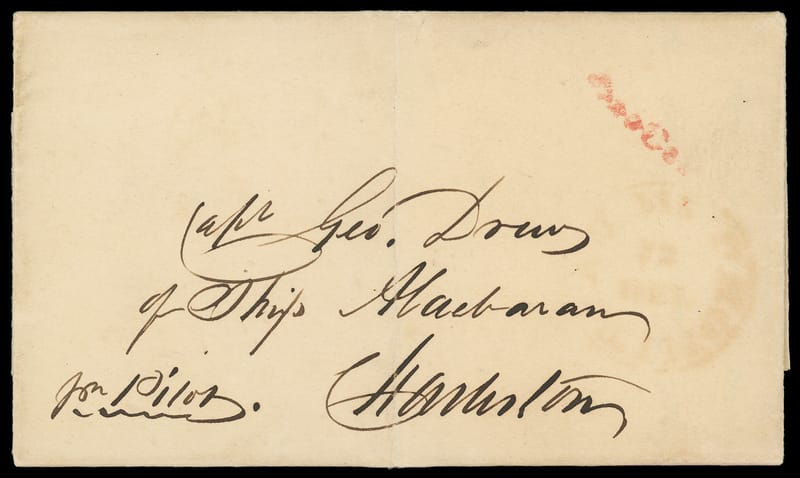 Capt Geo. Drew
of Ship Alacbaran
pr Pilot. Charleston